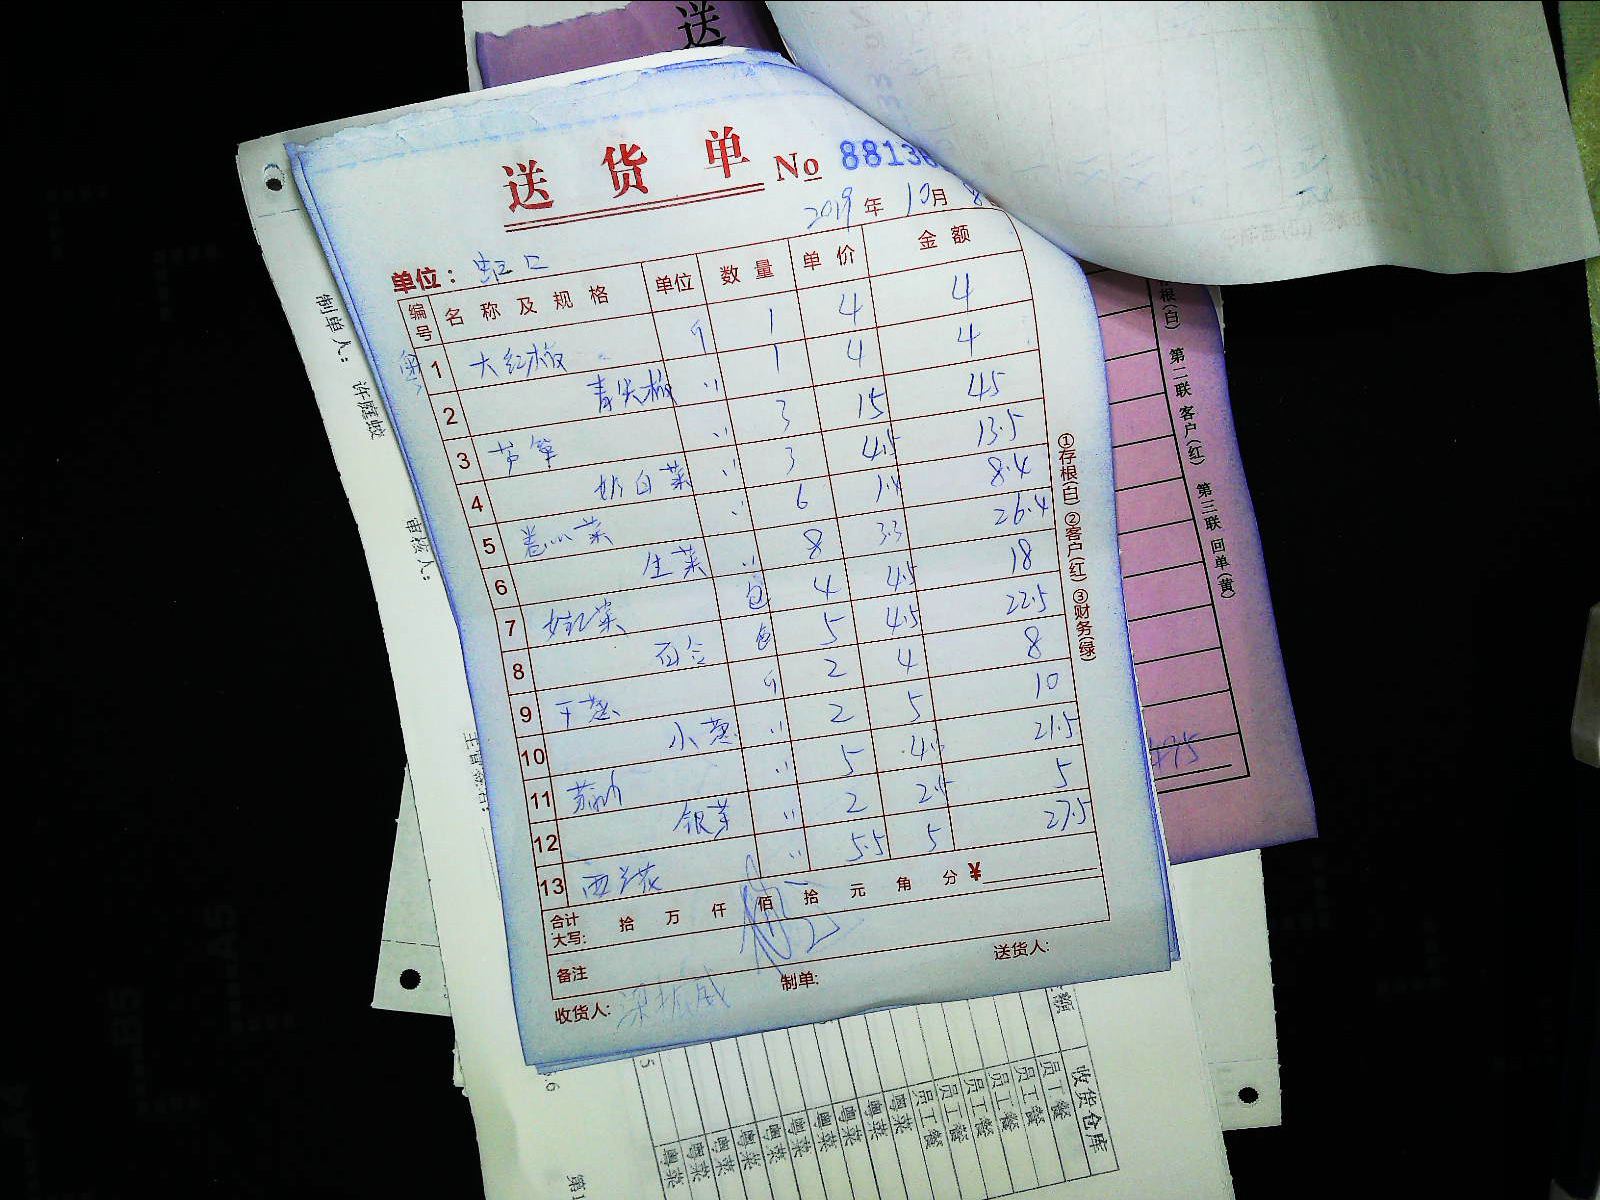 送
送 货 单 No 88138
2019 年 10 月 8
单位： 虹口
编号 名称及规格 单位 数量 单价 金额
粤
1 大红椒 斤 1 4 4
2 青尖椒 〃 1 4 4
3 芦笋 〃 3 15 45
4 奶白菜 〃 3 4.5 13.5
5 卷心菜 〃 6 1.4 8.4
6 生菜 〃 8 3.3 26.4
7 娃娃菜 包 4 4.5 18
8 百合 包 5 4.5 22.5
9 干葱 斤 2 4 8
10 小葱 〃 2 5 10
11 〃 5 21.5
12 银芽 〃 2 2.5 5
13 西兰花 〃 5.5 5 27.5
合计大写: 拾 万 仟 佰 拾 元 角 分 ¥
备注
收货人: 梁振威 制单: 送货人:
①存根(白) ②客户(红) ③财务(绿)
根(白) 第二联 客户(红) 第三联 回单(黄)
475
制单人: 许庭蛟
审核人:
收货仓库
员工餐
员工餐
员工餐
员工餐
员工餐
员工餐
粤菜
粤菜
粤菜
粤菜
粤菜
粤菜
粤菜
粤菜
粤菜
粤菜